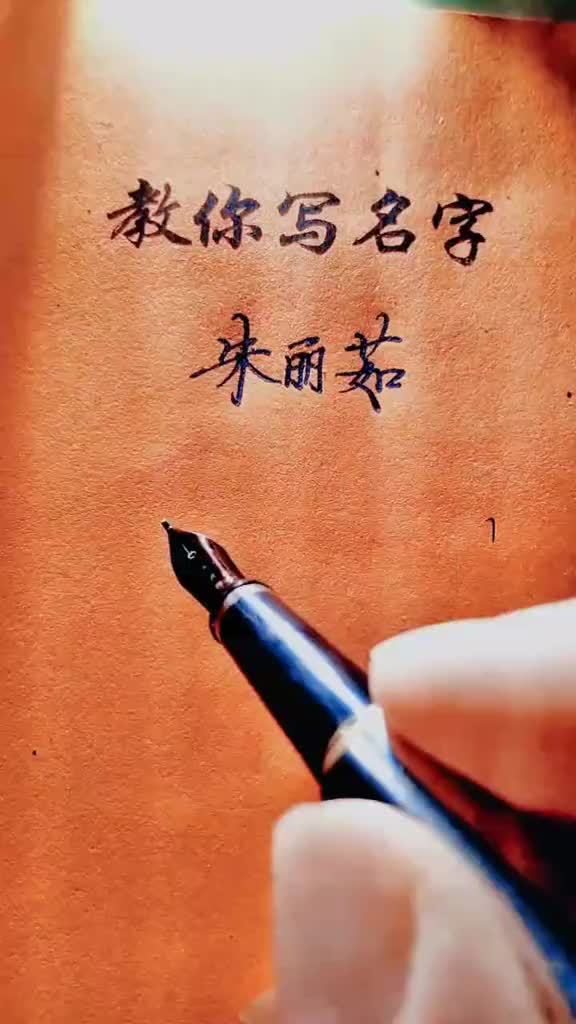 教你写名字
朱丽茹